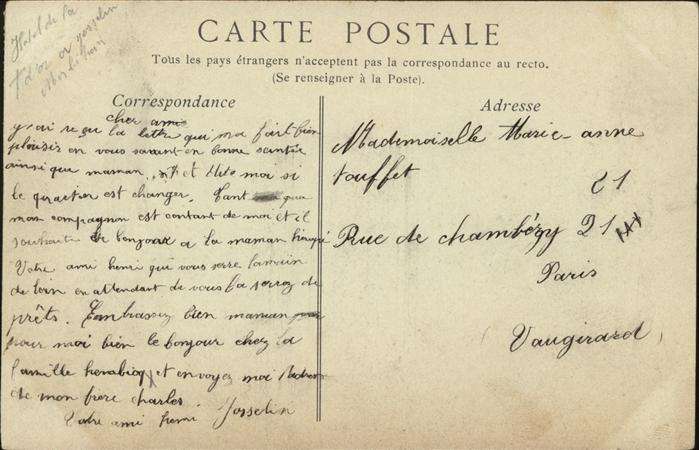 Hotel de la
t d'or a josselin
Morbihan
CARTE POSTALE
Tous les pays étrangers n'acceptent pas la correspondance au recto.
(Se renseigner à la Poste).
Correspondance
cher amie
j'ai reçu la lettre qui ma fait bien
plaisir en vous savant en bonne santée
ainsi que maman. et dite moi si
le quartier est changer. Tant qua
mon compagnon est contant de moi et il
souhaite le bonjour a la maman
Votre ami henri qui vous serre la main
de loin en attendant de vous la serrez de
prêts. Embrassez bien maman pour
pour moi bien le bonjour chez la
famille et envoyez moi
de mon frere charles.
Votre ami henri Josselin
Adresse
Mademoiselle Marie-anne
touffet
21
Rue de chambéry 21
Paris
Vaugirard